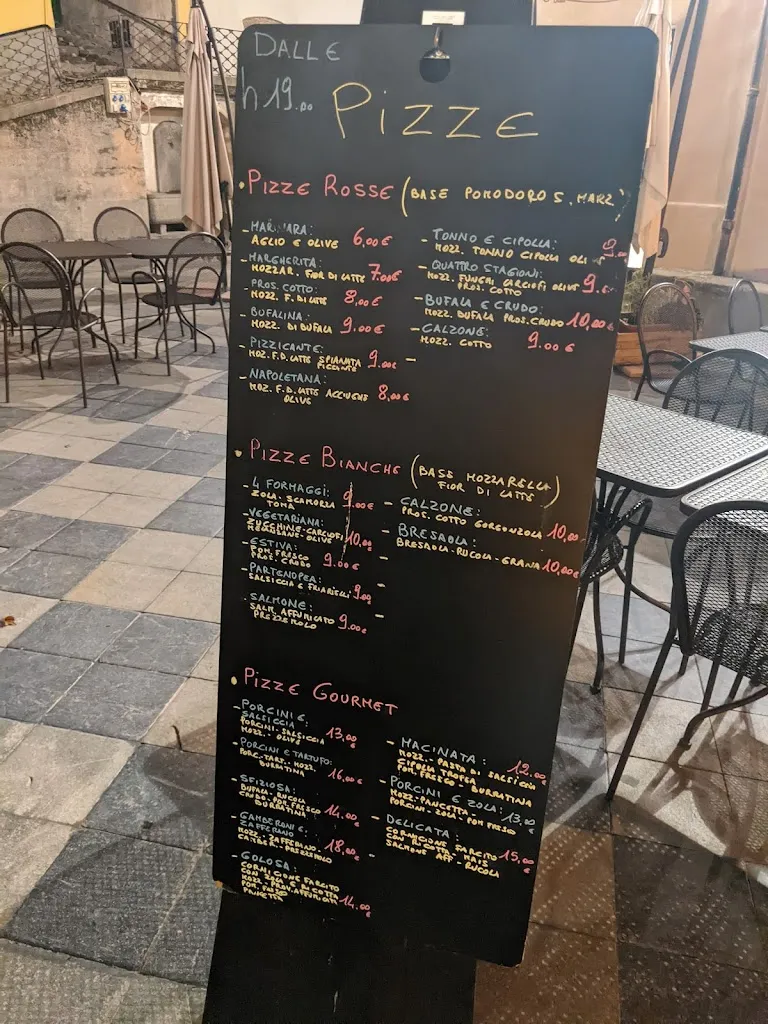 DALLE
h 19.00
PIZZE
PIZZE ROSSE (BASE POMODORO S. MARZ)
- MARINARA:
AGLIO E OLIVE 6,00 €
- MARGHERITA:
MOZZAR. FIOR DI LATTE 7.00€
- PROS. COTTO:
MOZZ. F. DI LATTE 8,00 €
- BUFALINA:
MOZZ. DI BUFALA 9.00 €
- PIZZICANTE:
MOZ. F.D. LATTE SPIANATA PICCANTE 9.00 €
- NAPOLETANA:
MOZ. F.D. LATTE ACCIUGHE OLIVE 8,00 €
- TONNO E CIPOLLA:
MOZZ. TONNO CIPOLLA 9.
- QUATTRO STAGIONI:
MOZZ. FUNGHI CARCIOFI OLIVE 9.
PROS. COTTO
- BUFALA E CRUDO:
MOZZ. BUFALA PROS. CRUDO 10,00 €
- CALZONE:
MOZZ. COTTO 9.00 €
-
PIZZE BIANCHE (BASE MOZZARELLA FIOR DI LATTE)
- 4 FORMAGGI:
ZOLA. SCAMORZA
TOMA 9.00 €
- VEGETARIANA:
ZUCCHINE-CARCIOFI
MELANZANE-OLIVE 10,00
- ESTIVA:
POM. FRESCO
PROS. CRUDO 9.00 €
- PARTENOPEA:
SALSICCIA E FRIARIELLI 9.00
- SALMONE:
SALM. AFFUMICATO
PREZZEMOLO 9.00 €
- CALZONE:
PROS. COTTO GORGONZOLA 10,00
- BRESAOLA:
BRESAOLA-RUCOLA-GRANA 10,00€
PIZZE GOURMET
- PORCINI E
SALSICCIA:
PORCINI-SALSICCIA
MOZZ. - OLIVE 13,00
- PORCINI E TARTUFO:
PORC.-TART.-MOZZ.
BURRATINA 16,00 €
- SFIZIOSA:
BUFALA-RUCOLA
CRUDO-POM. FRESCO
BURRATINA 14,00 €
- GAMBERONI E
ZAFFERANO:
MOZZ. ZAFFERANO-
GAMBER.-PREZZEMOLO 18,00 €
- GOLOSA:
CORNICIONE FARCITO
CON ZOLA E RICOTTA
MOZZ.- PROV. AFFUMICATA
POM. FRESCO
PANCETTA 14.00 €
- MACINATA: 12,00
MOZZ.- PASTA DI SALSICCIA
CIPOLLA TROPEA
POM. FRESCO - BURRATINA
- PORCINI E ZOLA: 13,00 €
MOZZ-PANCETTA-
PORCINI-ZOLA-POM FRESCO
- DELICATA:
CORNICIONE FARCITO
CON RICOTTA - MAIS
SALMONE AFF - RUCOLA 15,00 €